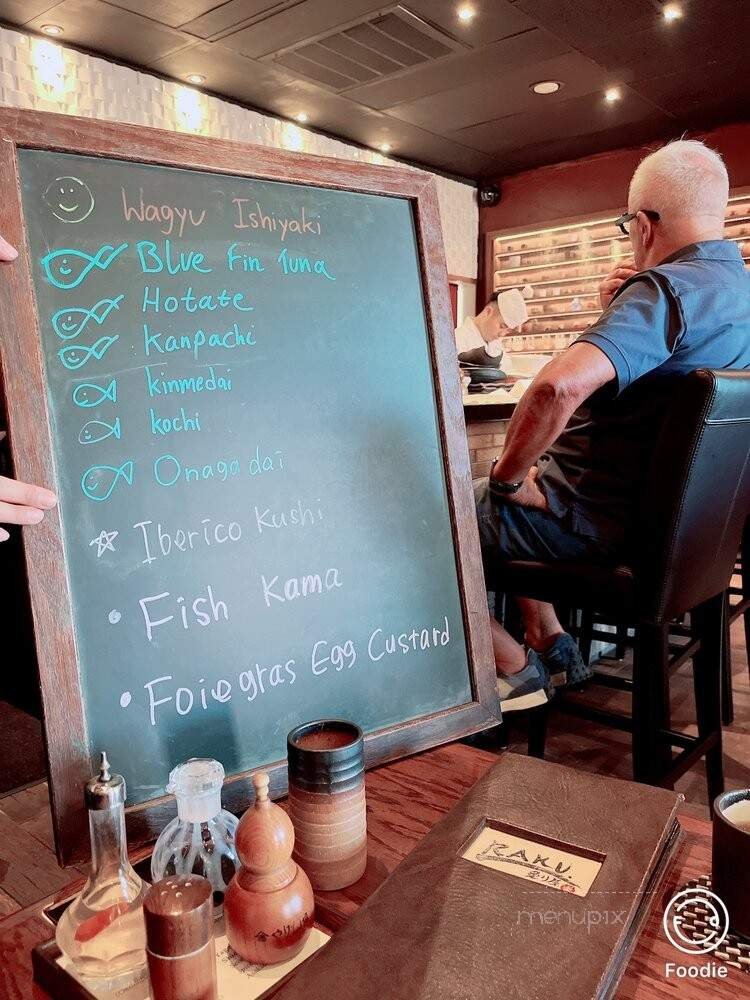 Wagyu Ishiyaki
Blue Fin Tuna
Hotate
Kanpachi
kinmedai
kochi
Onagadai
Iberico Kushi
• Fish Kama
• Foiegras Egg Custard
RAKU
menupix
F d
Foodie